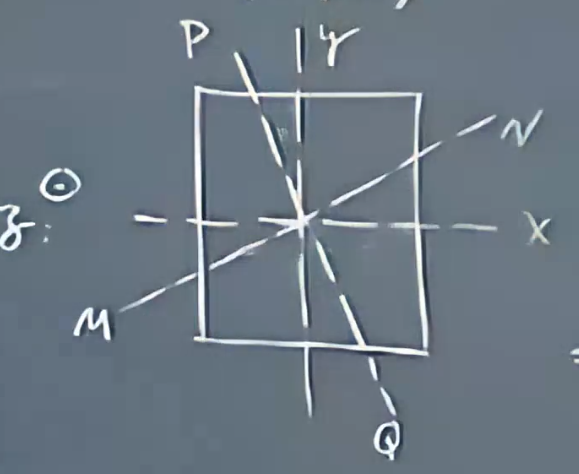 P
y
N
z:
x
M
Q